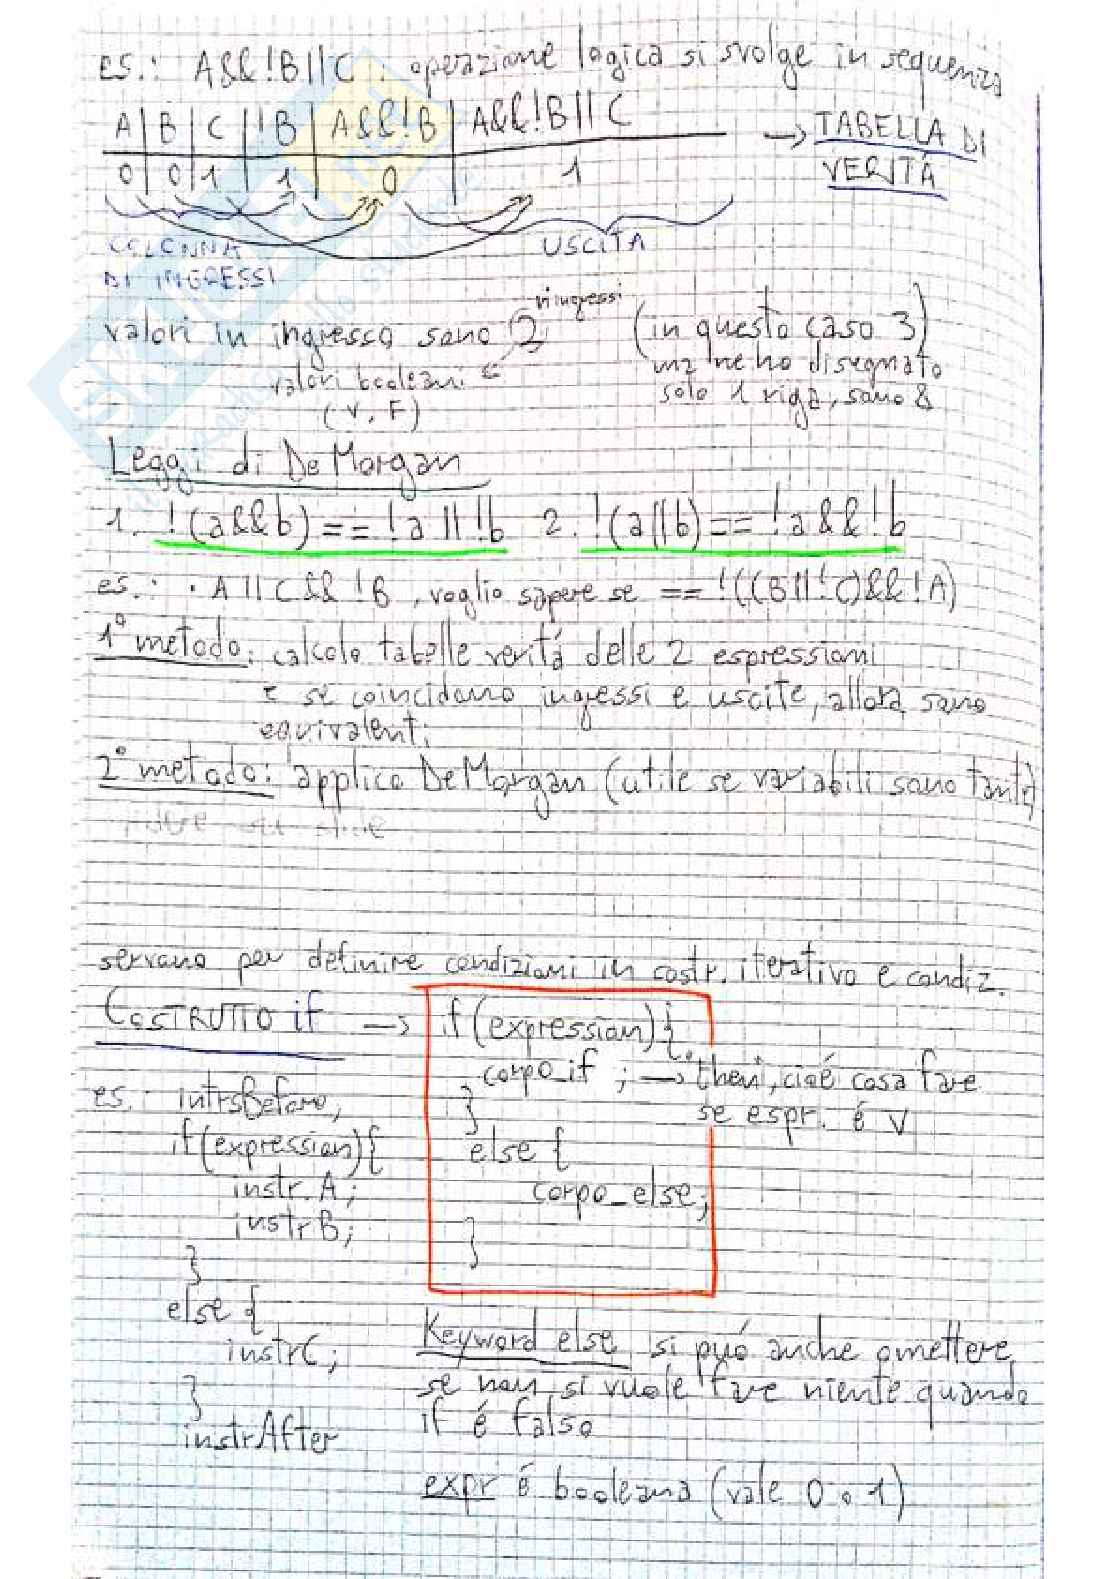 es.: A&&!B||C . operazione logica si svolge in sequenza
A | B | C | !B | A&&!B | A&&!B||C → TABELLA DI VERITÀ
0 0 1 1 0 1
COLONNA DI INGRESSI
USCITA
valori in ingresso sono 2^n ingressi (in questo caso 3)
valori booleani ma ne ho disegnato
(V, F) solo 1 riga, sono 8
Leggi di De Morgan
1. !(a&&b) == !a || !b 2. !(a||b) == !a && !b
es.: · A || C && !B , voglio sapere se == !((B||!C)&&!A)
1° metodo: calcolo tabelle veritá delle 2 espressioni
e se coincidono ingressi e uscite, allora sono
equivalenti
2° metodo: applico De Morgan (utile se variabili sono tante)
servono per definire condizioni in costr. iterativo e condiz.
COSTRUTTO if → if (expression) {
corpo_if ; → then, cioé cosa fare
se espr. é V
}
else {
corpo_else;
}
es. intrsBefore;
if (expression) {
instr.A;
instrB;
}
else {
instrC;
}
instrAfter
Keyword else si puó anche omettere,
se non si vuole fare niente quando
if é falso
expr é booleana (vale 0 o 1)